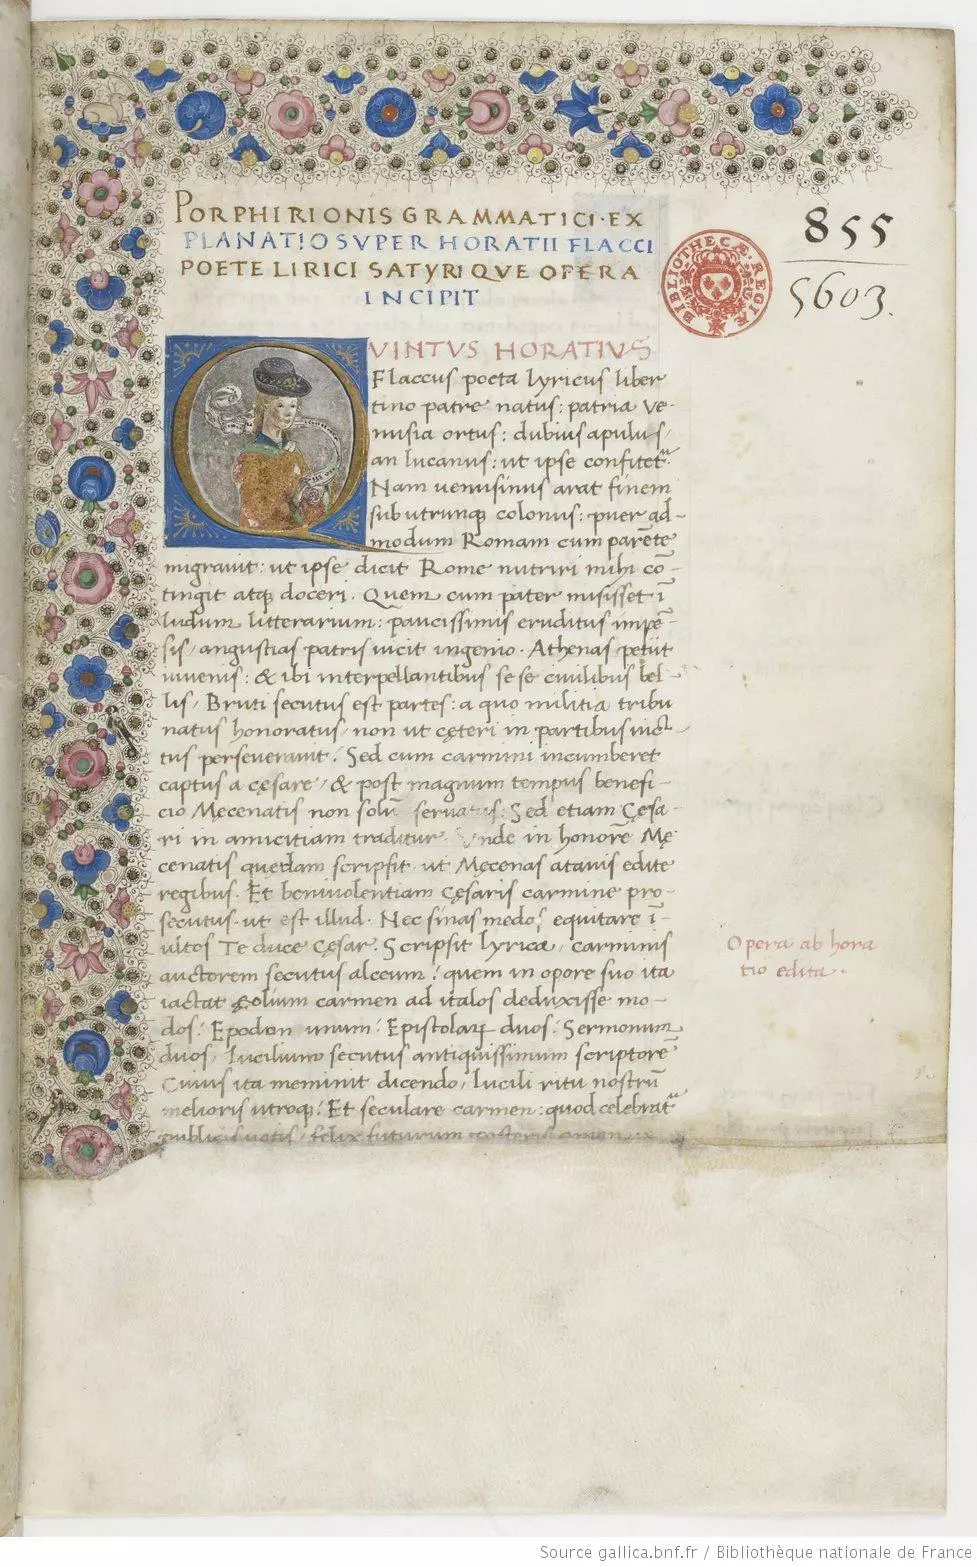 PORPHIRIONIS GRAMMATICI·EX
PLANATIO SVPER HORATII FLACCI
POETE LIRICI SATYRIQVE OPERA
INCIPIT
855
5603.
BIBLIOTHECÆ REGIÆ
QVINTVS HORATIVS
Flaccus poeta lyricus liber
tino patre natus: patria Ve-
nusia ortus: dubius apulus/
an lucanus: ut ipse confitet̃.
Nam uenusinus arat finem
sub utrunq; colonus: puer ad-
modum Romam cum parẽte
migrauit: ut ipse dicit Rome nutriri mihi cõ-
tingit atq; doceri. Quem cum pater misisset ĩ
ludum litterarium: paucissimis eruditus impẽ-
sis/ angustias patris uicit ingenio. Athenas petiit
iuuenis: & ibi interpellantibus se se ciuilibus bel-
lis/ Bruti secutus est partes: a quo militia tribu
natus honoratus/ non ut cęteri in partibus uic-
tus perseuerauit: Sed cum carmini incumberet
captus a cęsare/ & post magnum tempus benefi-
cio Mecenatis non solũ seruatus: Sed etiam Cęsa-
ri in amicitiam traditur. Vnde in honorẽ Mę
cenatis quędam scripsit. ut Męcenas atauis edite
regibus. Et beniuolentiam Cęsaris carmine pro-
secutus. ut est illud. Nec sinas medos equitare ĩ-
ultos Te duce Cęsar. Scripsit lyrica/ carminis
auctorem secutus alceum: quem in opore suo ita
iactat ęolium carmen ad italos deduxisse mo-
dos: Epodon unum: Epistolaꝝ duos: Sermonum
duos/ luciliũno secutus antiquissimum scriptorẽ
Cuius ita meminit dicendo/ lucili ritu nostrũ
melioris utroq;: Et seculare carmen: quod celebrat̃
publicis uotis/ felix futurum
Opera ab hora
tio edita.
Source gallica.bnf.fr / Bibliothèque nationale de France